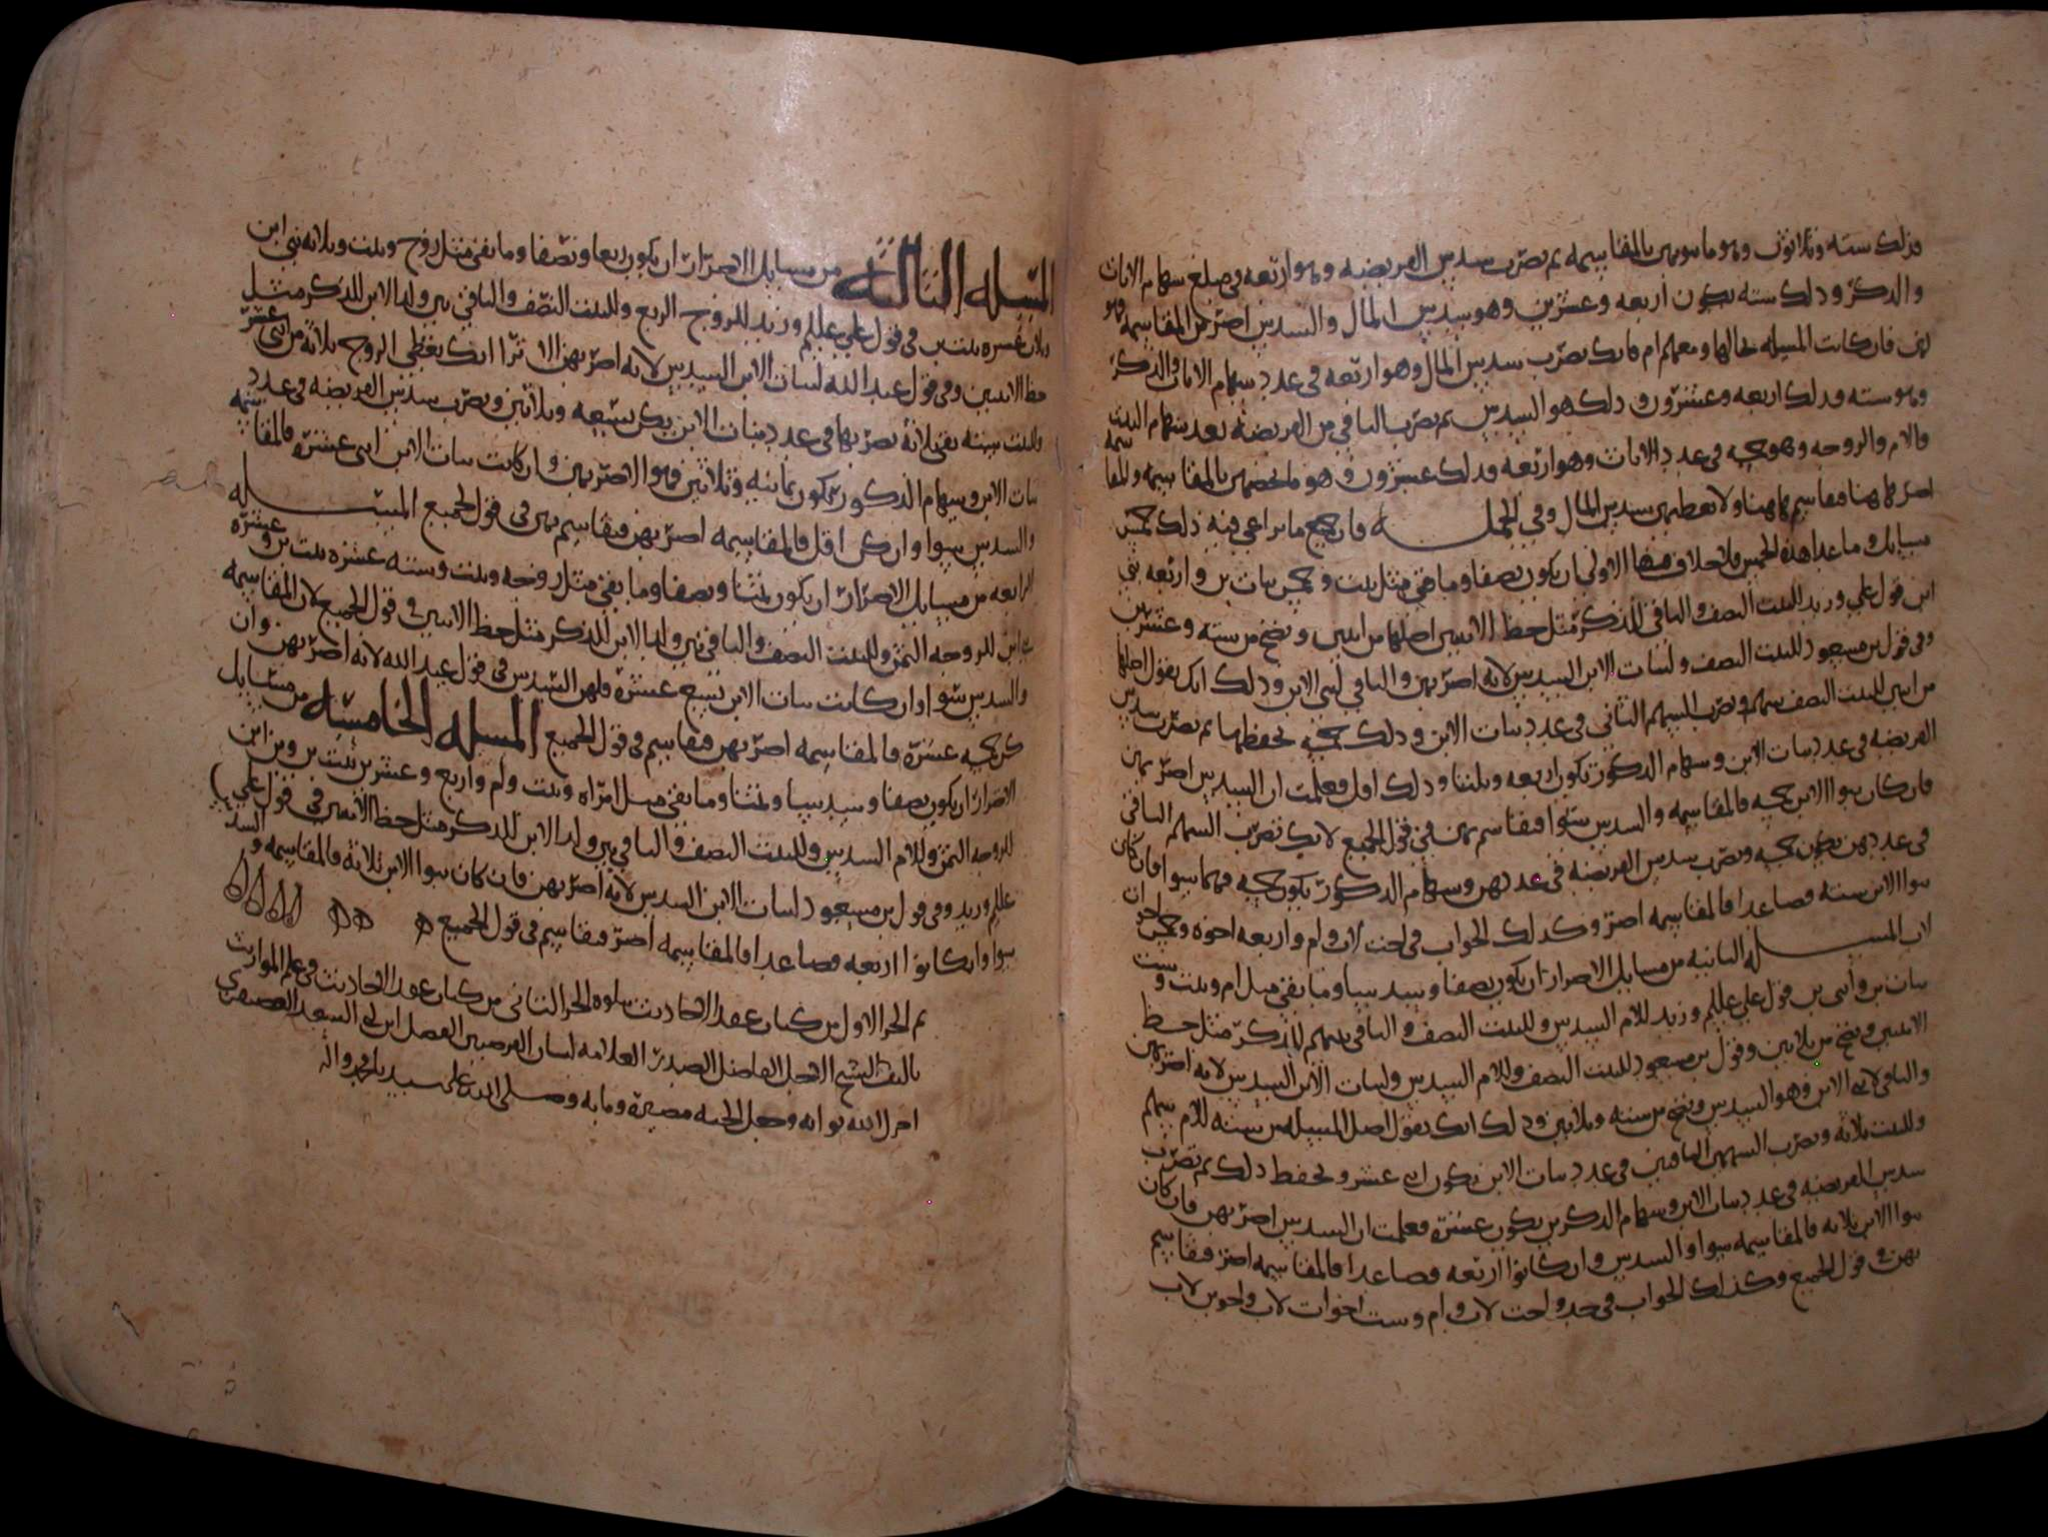 وذلك ستة وثلاثون وهو ما سهمهن بالمقاسمه ثم تضرب سدس الفريضه وهو اربعه في مبلغ سهام الاناث
والذكر وذلك سته يكون اربعه وعشرين وهو سدس المال والسدس اضر من المقاسمه
لهن فان كانت المسيله بحالها ومعهم ام فانك تضرب سدس المال وهو اربعه في عدد سهام الاناث والذكر
وهو سته وذلك اربعه وعشرون وذلك هو السدس ثم تضرب الباقي من الفريضه بعد سهام البنت
والام والزوجه وهو خمسه في عدد الاناث وهو اربعه وذلك عشرون وهو ما يخصهن بالمقاسمه والمقاسمه
اضر هاهنا فقاسم هاهنا ولا تعطهن سدس المال وفي الجمله فان جميع ما يراعي فيه ذلك خمس
مسايل وما عدا هذه الخمس فلا خلاف فيها الاولى ان يكون نصفا وما بقي مثل بنت وخمس بنات بن واربعه بني
ابن قول علي وزيد للبنت النصف والباقي للذكر مثل حظ الانثيين اصلها من اثنين وتصح من سته وعشرين
وفي قول بن مسعود للبنت النصف ولبنات الابن السدس لانه اضر بهن والباقي لبني الابن وذلك انك تقول اصلها
من اثنين للبنت النصف سهم وتضرب السهم الثاني في عدد بنات الابن وذلك خمسه تحفظها ثم تضرب سدس
الفريضه في عدد بنات الابن وسهام الذكور تكون اربعه وثلثا وذلك اقل فعلمت ان السدس اضر بهن
فان كان بنوا الابن خمسه فالمقاسمه والسدس سوا فقاسم بهن في قول الجميع لانك تضرب السهم الباقي
في عددهن يكون خمسه وتضرب سدس الفريضه في عددهن وسهام الذكور يكون خمسه فهما سوا فان كان
بنوا الابن سته فصاعدا فالمقاسمه اضر وكذلك الجواب في اخت لاب وام واربعه اخوه وخمس اخوات
لاب المسله الثانيه من مسايل الاضرار ان يكون نصفا وسدسا وما بقي مثل ام وبنت وست
بنات بن وابني بن قول علي عليلم وزيد للام السدس وللبنت النصف والباقي بينهم للذكر مثل حظ
الانثيين وتصح من ثلاثين وقول بن مسعود للبنت النصف وللام السدس ولبنات الابن السدس لانه اضر بهن
والباقي لابني الابن وهو السدس وتصح من سته وثلاثين وذلك انك تقول اصل المسيله من سته للام سهم
وللبنت ثلاثه وتضرب السهمين الباقيين في عدد بنات الابن يكون اثني عشر وتحفظ ذلك ثم تضرب
سدس الفريضه في عدد بنات الابن وسهام الذكرين يكون عشره فعلمت ان السدس اضر بهن فان كان
بنوا الابن ثلاثه فالمقاسمه سوا والسدس وان كانوا اربعه فصاعدا فالمقاسمه اضر فقاسم
بهن في قول الجميع وكذلك الجواب في جد واخت لاب وام وست اخوات لاب واخوين لاب
المسله الثالثه من مسايل الاضرار ان يكون ربعا ونصفا وما بقي مثل زوج وبنت وثلاثه بني ابن
وثلاث عشره بنت بن في قول علي عليلم وزيد للزوج الربع وللبنت النصف والباقي بين ولد الابن للذكر مثل
حظ الانثيين وفي قول عبد الله لبنات الابن السدس لانه اضر بهن الا ترا انك تعطي الزوج ثلاثه من اثني عشر
وللبنت سته بقي ثلاثه تضربها في عدد بنات الابن يكن تسعه وثلاثين وتضرب سدس الفريضه في عدد
بنات الابن وسهام الذكور تكون ثمانيه وثلاثين فهوا الاضر بهن وان كانت بنات الابن اثني عشره فالمقاسمه
والسدس سوا وان كن اقل فالمقاسمه اضر بهن فقاسم بهن في قول الجميع المسله
الرابعه من مسايل الاضرار ان يكون ثمنا ونصفا وما بقي مثل زوجه وبنت وسته عشره بنت بن وعشره
بني ابن للزوجه الثمن وللبنت النصف والباقي بين ولد الابن للذكر مثل حظ الانثيين في قول الجميع لان المقاسمه
والسدس سوا وان كانت بنات الابن سبع عشره فلهن السدس في قول عبد الله لانه اضر بهن وان
كن خمسه عشره فالمقاسمه اضر بهن فقاسم في قول الجميع المسله الخامسه من مسايل
الاضرار ان يكون نصفا وسدسا وثمنا وما بقي مثل امراه وبنت وام واربع وعشرين بنت بن وبن ابن
للزوجه الثمن وللام السدس وللبنت النصف والباقي بين ولد الابن للذكر مثل حظ الانثيين في قول علي
عليلم وزيد وفي قول بن مسعود لبنات الابن السدس لانه اضر بهن فان كان بنوا الابن ثلاثه فالمقاسمه والسدس
سوا وان كانوا اربعه فصاعدا فالمقاسمه اضر فقاسم في قول الجميع
تم الجز الاول من كتاب عقد الاحاديث يتلوه الجز الثاني من كتاب عقد الاحاديث في علم المواريث
تاليف الشيخ الاجل الفاضل الصدر العلامه لسان الفرضيين الفضل ابن ابي السعد العصيفري
اجزل الله ثوابه وجعل الجنه مصيره ومابه وصلى الله على سيدنا محمد واله